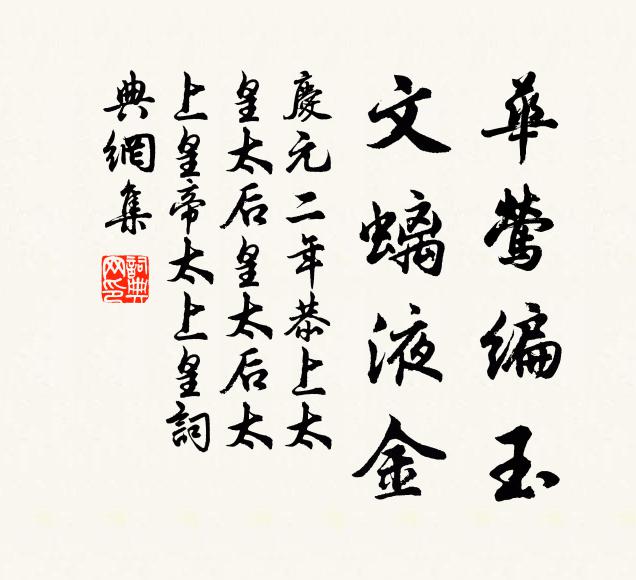 華鶯編玉
文螭液金
慶元二年恭上太
皇太后皇太后太
上皇帝太上皇詞
典網集
詞典網印